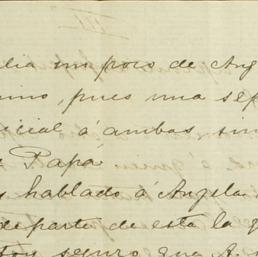 III
lia un poco de Ang
mino, pues una sep
icial á ambas, sin
Papá
hablado á Angela
de parte de esta la q
toy seguro que A